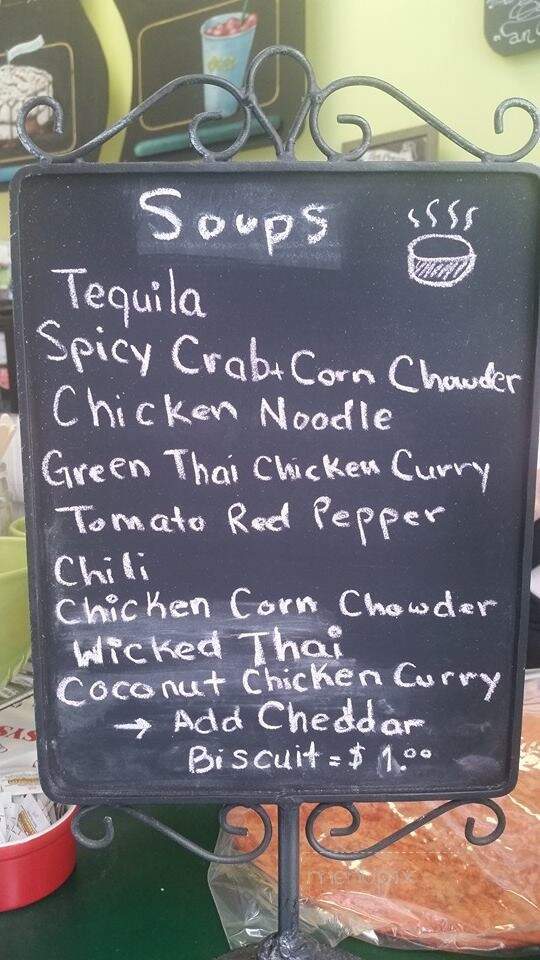 Soups
Tequila
Spicy Crab + Corn Chowder
Chicken Noodle
Green Thai Chicken Curry
Tomato Red Pepper
Chili
Chicken Corn Chowder
Wicked Thai
Coconut Chicken Curry
→ Add Cheddar
Biscuit = $ 1.00
menupix